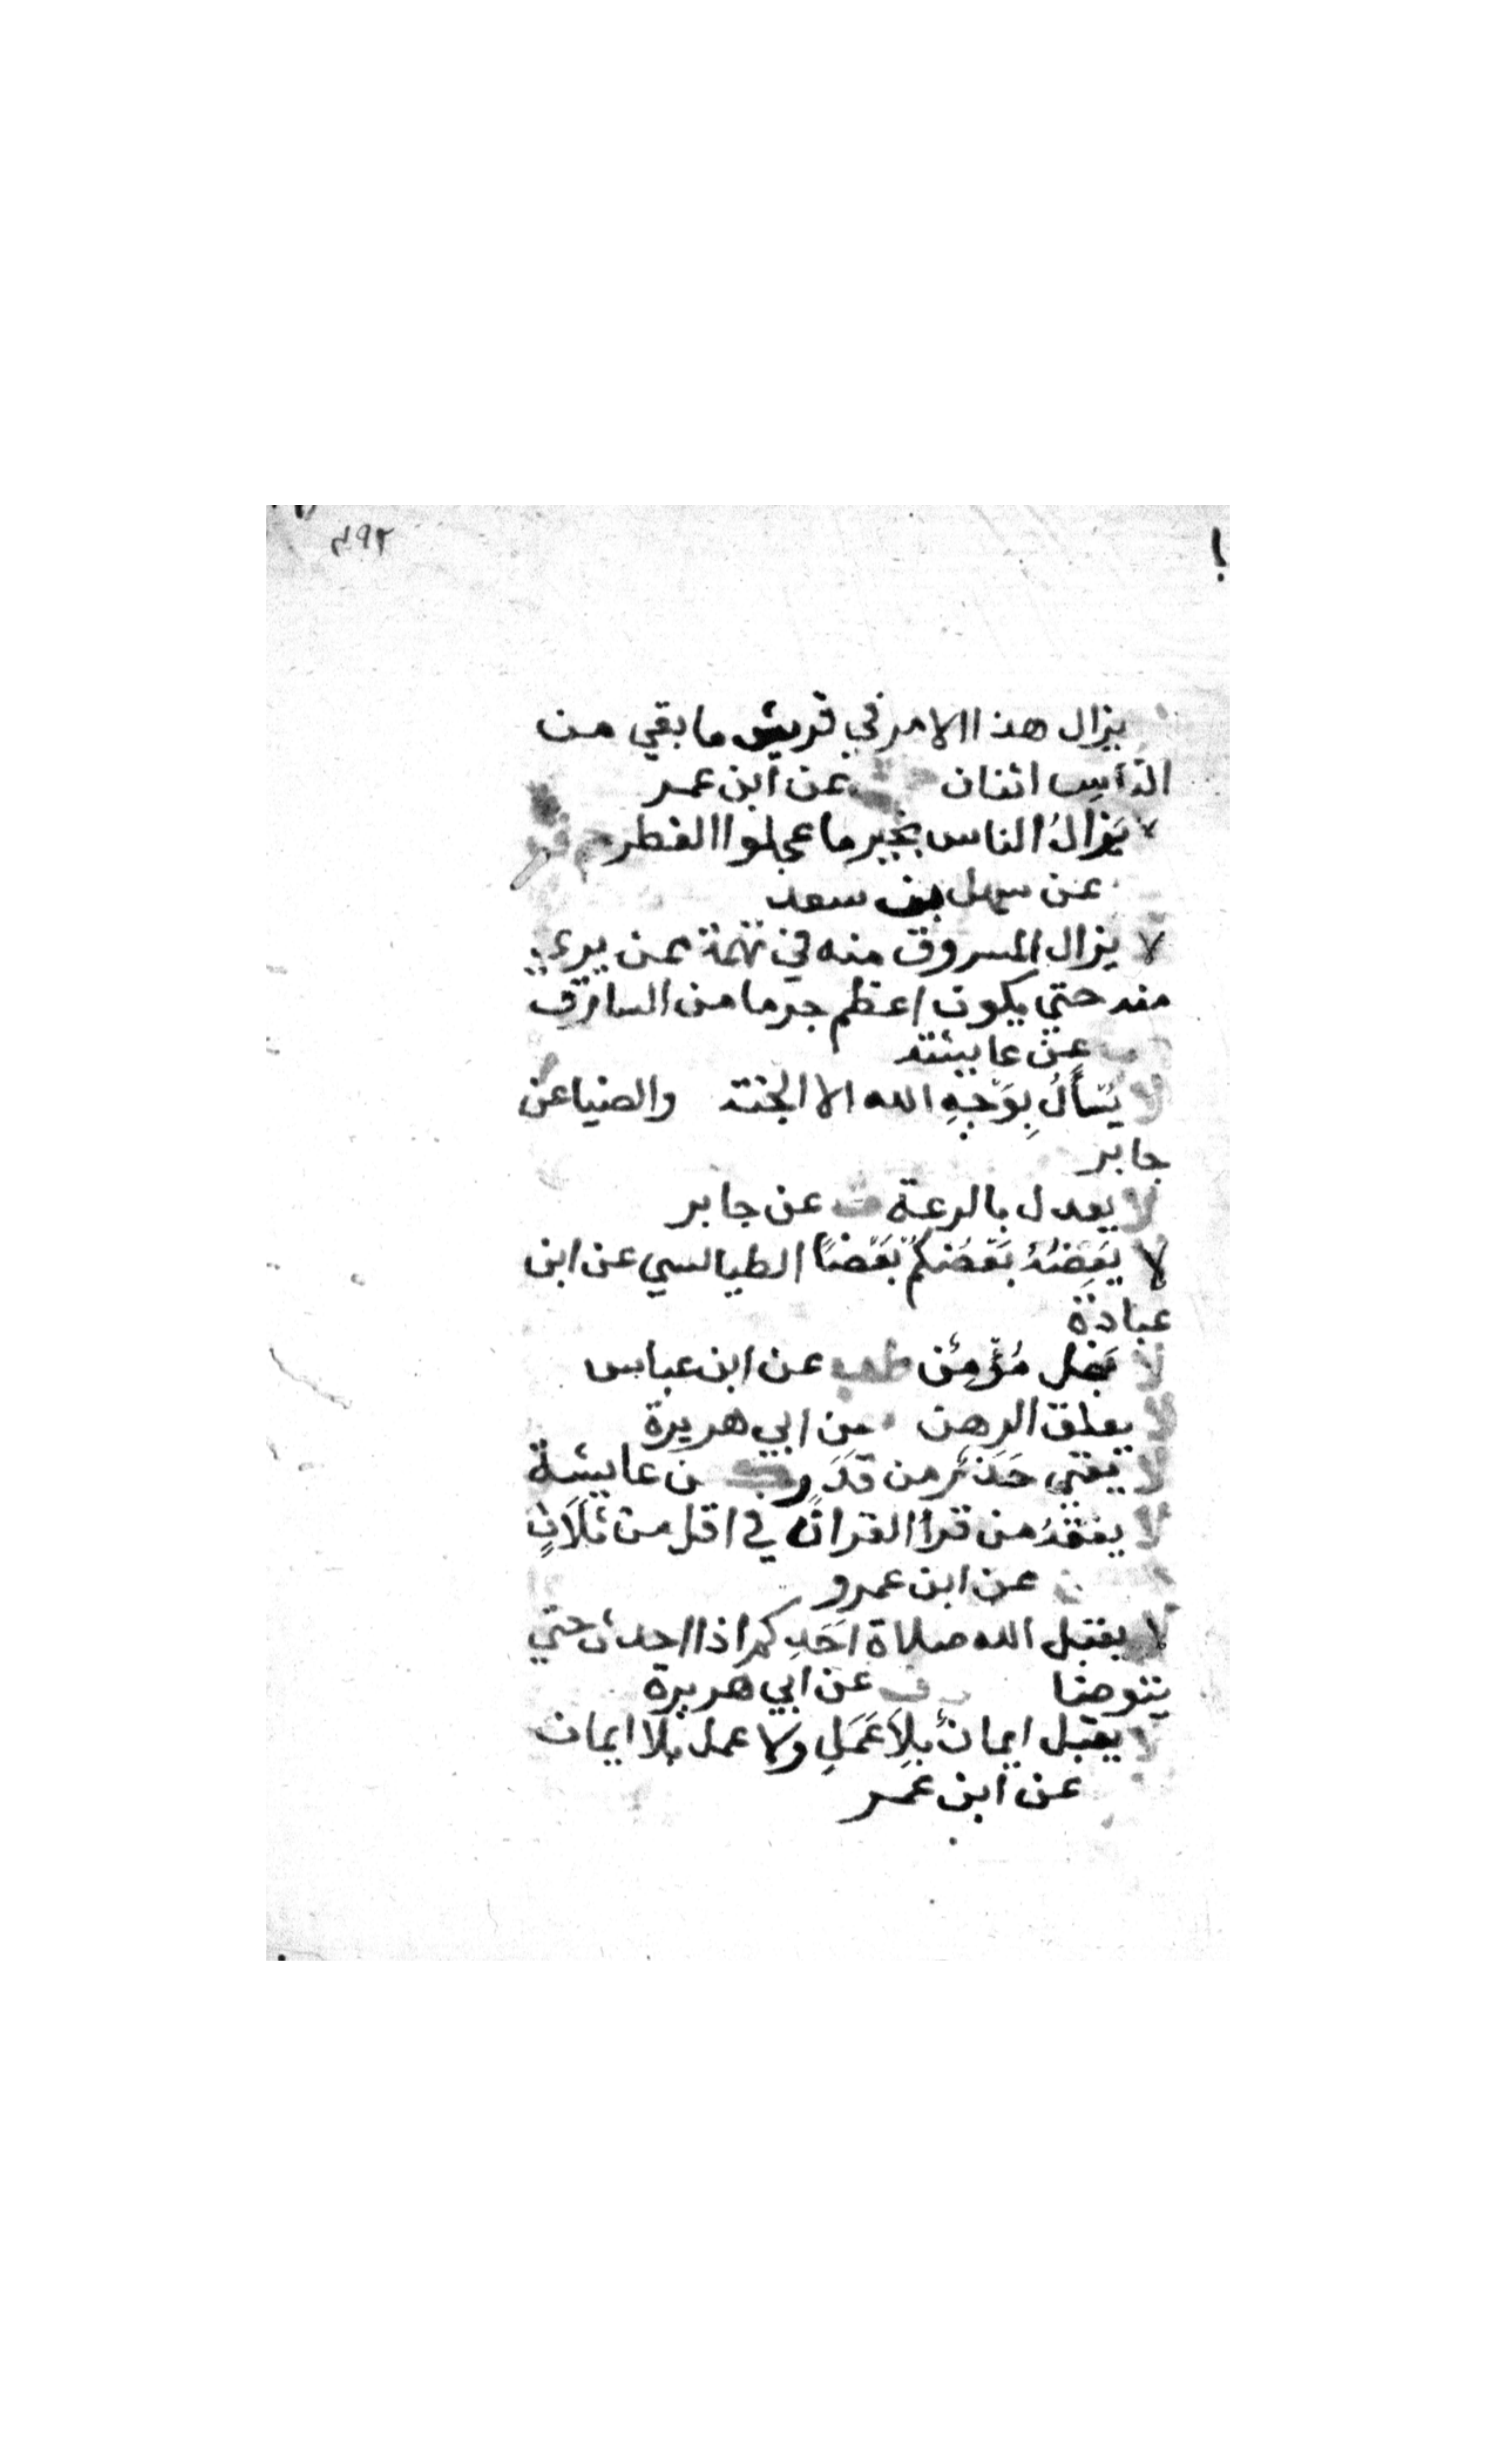 ٤٩٢
يزال هذا الامر في قريش ما بقي من
الناس اثنان عن ابن عمر
لا يَزالُ الناس بخير ما عجلوا الفطر
عن سهل بن سعد
لا يزال المسروق منه في تهمة ممن بريء
منه حتي يكون اعظم جرما من السارق
عن عايشة
لا يُسأَلُ بِوَجْهِ الله الا الجنة والضيا عن
جابر
لا يعدل بالرعة ت عن جابر
لا يَعِضْهُ بَعْضُكُم بَعْضًا الطيالسي عن ابن
عبادة
لا مُؤمِن طب عن ابن عباس
لا يغلق الرهن عن ابي هريرة
لا يغني حَذَرٌ من قَدَرٍ عن عايشة
لا يفقهُ من قرا القران في اقل من ثلاثٍ
عن ابن عمرو
لا يقبل الله صلاة اَحَدِكم اذا احدث حتي
يتوضا عن ابي هريرة
لا يقبل ايمانٌ بِلَا عَمَلٍ ولا عمل بلا ايمان
عن ابن عمر